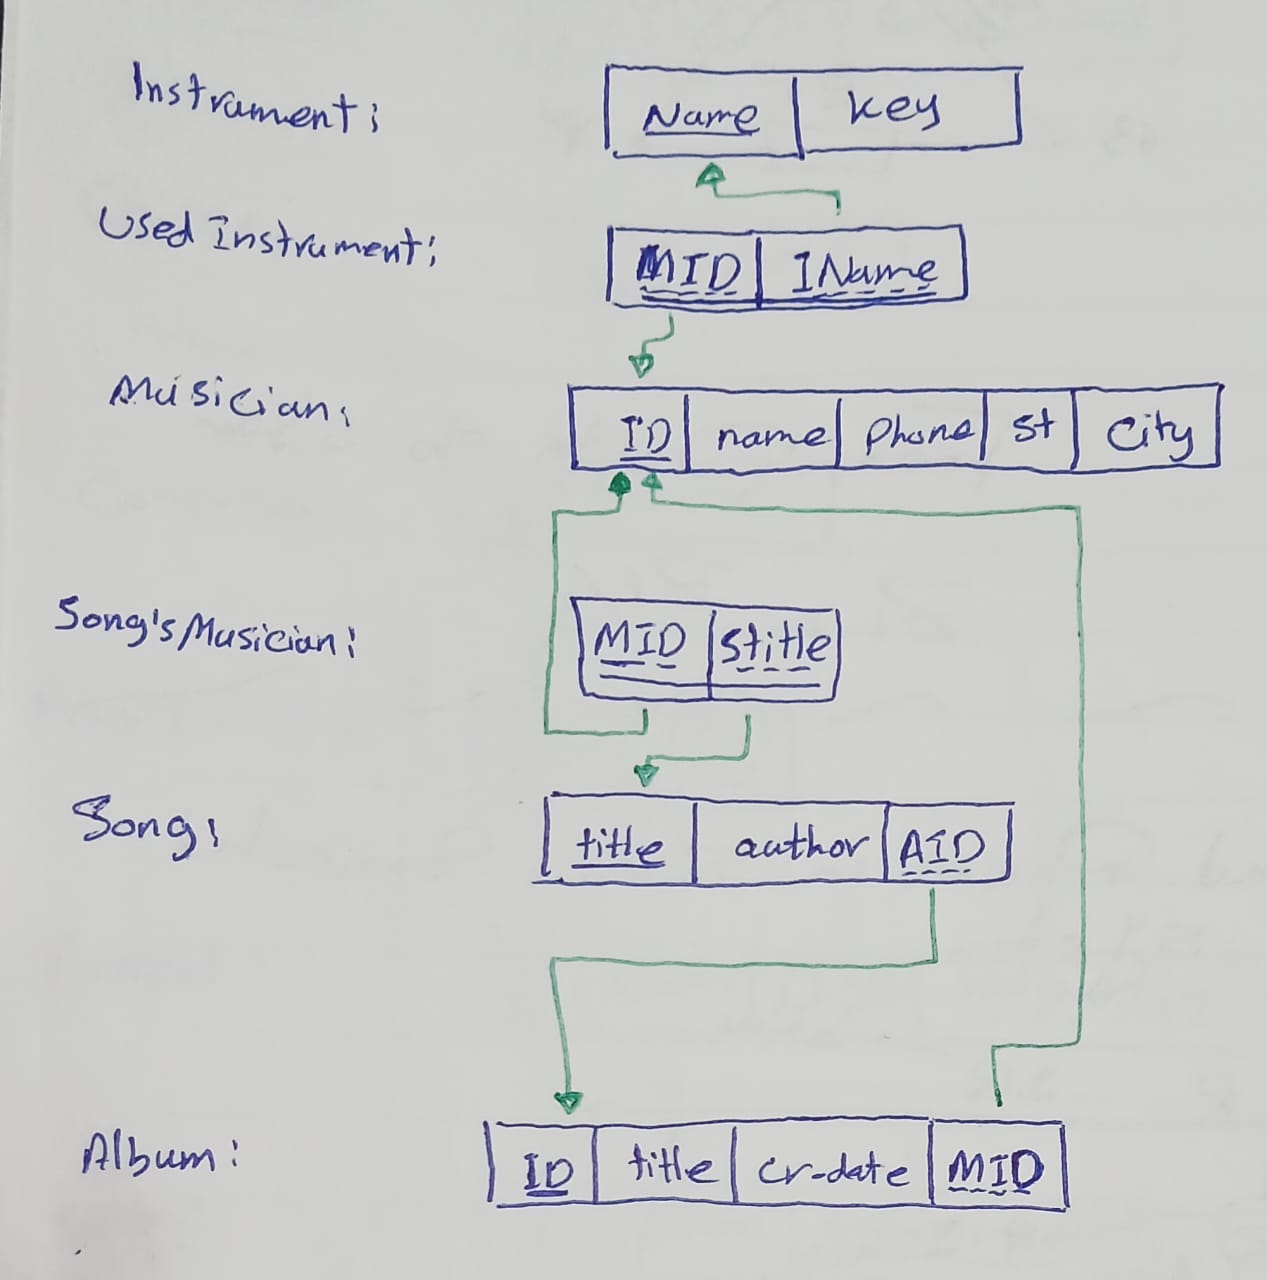 Instrument:
Name key
Used Instrument:
MID IName
Musician:
ID name Phone St City
Song's Musician:
MID Stitle
Song:
title author AID
Album:
ID title cr-date MID